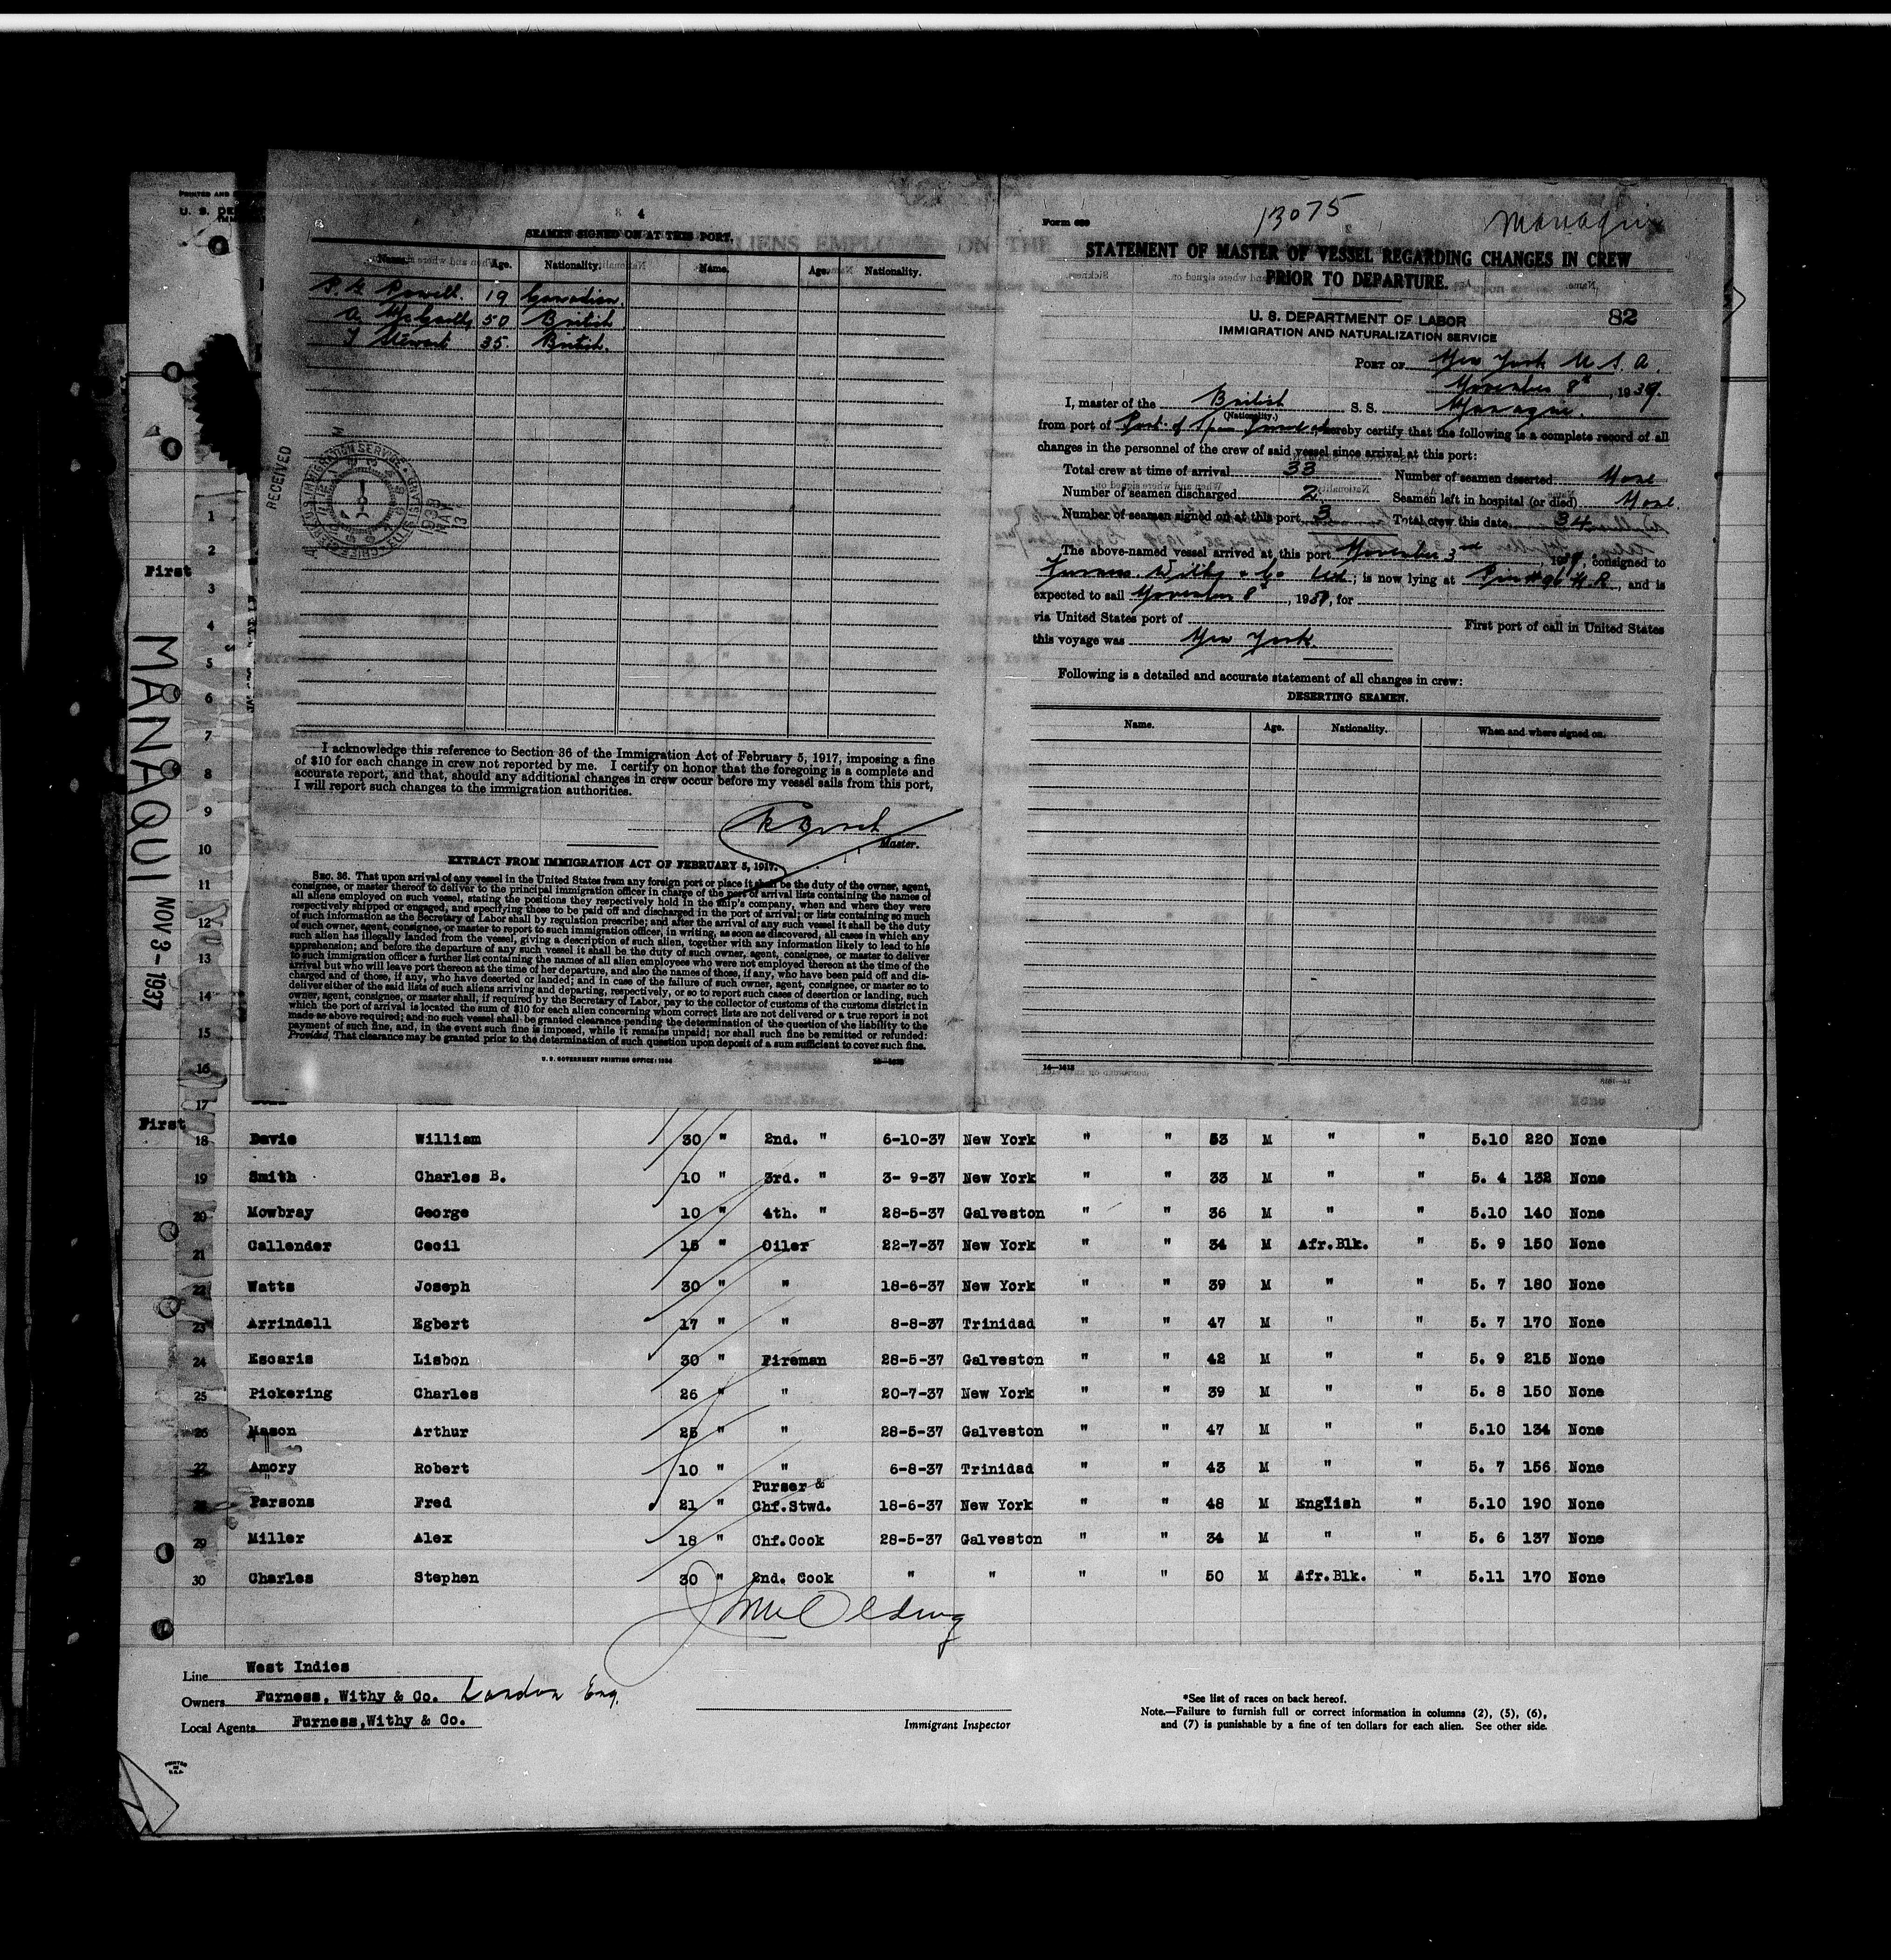 PRINTED AND
U. S. DE
4
SEAMEN SIGNED ON AT THIS PORT.
Name. Age. Nationality. Name. Age. Nationality.
P. G. Powell. 19 Canadian.
A 50 British
J Stewart 35. British.
RECEIVED
1938 MAY 13
I acknowledge this reference to Section 36 of the Immigration Act of February 5, 1917, imposing a fine
of $10 for each change in crew not reported by me. I certify on honor that the foregoing is a complete and
accurate report, and that, should any additional changes in crew occur before my vessel sails from this port,
I will report such changes to the immigration authorities.
Master.
EXTRACT FROM IMMIGRATION ACT OF FEBRUARY 5, 1917.
SEC. 36. That upon arrival of any vessel in the United States from any foreign port or place it shall be the duty of the owner, agent,
consignee, or master thereof to deliver to the principal immigration officer in charge of the port of arrival lists containing the names of
all aliens employed on such vessel, stating the positions they respectively hold in the ship's company, when and where they were
respectively shipped or engaged, and specifying those to be paid off and discharged in the port of arrival; or lists containing so much
of such information as the Secretary of Labor shall by regulation prescribe; and after the arrival of any such vessel it shall be the duty
of such owner, agent, consignee, or master to report to such immigration officer, in writing, as soon as discovered, all cases in which any
such alien has illegally landed from the vessel, giving a description of such alien, together with any information likely to lead to his
apprehension; and before the departure of any such vessel it shall be the duty of such owner, agent, consignee, or master to deliver
to such immigration officer a further list containing the names of all alien employees who were not employed thereon at the time of the
arrival but who will leave port thereon at the time of her departure, and also the names of those, if any, who have been paid off and dis-
charged and of those, if any, who have deserted or landed; and in case of the failure of such owner, agent, consignee, or master so to
deliver either of the said lists of such aliens arriving and departing, respectively, or so to report such cases of desertion or landing, such
owner, agent, consignee, or master shall, if required by the Secretary of Labor, pay to the collector of customs of the customs district in
which the port of arrival is located the sum of $10 for each alien concerning whom correct lists are not delivered or a true report is not
made as above required; and no such vessel shall be granted clearance pending the determination of the question of the liability to the
payment of such fine, and, in the event such fine is imposed, while it remains unpaid; nor shall such fine be remitted or refunded:
Provided, That clearance may be granted prior to the determination of such question upon deposit of a sum sufficient to cover such fine.
U. S. GOVERNMENT PRINTING OFFICE: 1934
Form 680
13075
Manaqui
STATEMENT OF MASTER OF VESSEL REGARDING CHANGES IN CREW
PRIOR TO DEPARTURE.
U. S. DEPARTMENT OF LABOR 82
IMMIGRATION AND NATURALIZATION SERVICE
PORT OF New York U. S. A.
November 8th, 1937.
I, master of the British S. S. Manaqui.
(Nationality.)
from port of Port of Spain hereby certify that the following is a complete record of all
changes in the personnel of the crew of said vessel since arrival at this port:
Total crew at time of arrival 33 Number of seamen deserted None
Number of seamen discharged 2 Seamen left in hospital (or died) None.
Number of seamen signed on at this port 3 Total crew this date 34
The above-named vessel arrived at this port November 3rd, 1937, consigned to
Furness Withy & Co Ltd; is now lying at Pier # 96 N. R., and is
expected to sail November 8th, 1937, for
via United States port of First port of call in United States
this voyage was New York.
Following is a detailed and accurate statement of all changes in crew:
DESERTING SEAMEN.
Name. Age. Nationality. When and where signed on.
14—1618
First
MANAQUI NOV 3-1937
1
2
3
4
5
6
7
8
9
10
11
12
13
14
15
16
17
First
18 Davis William 30 " 2nd. " 6-10-37 New York " " 53 M " " 5.10 220 None
19 Smith Charles B. 10 " 3rd. " 3- 9-37 New York " " 33 M " " 5. 4 132 None
20 Mowbray George 10 " 4th. " 28-5-37 Galveston " " 36 M " " 5.10 140 None
21 Callender Cecil 15 " Oiler 22-7-37 New York " " 34 M Afr.Blk. " 5. 9 150 None
22 Watts Joseph 30 " " 18-6-37 New York " " 39 M " " 5. 7 180 None
23 Arrindell Egbert 17 " " 8-8-37 Trinidad " " 47 M " " 5. 7 170 None
24 Escaris Lisbon 30 " Fireman 28-5-37 Galveston " " 42 M " " 5. 9 215 None
25 Pickering Charles 26 " " 20-7-37 New York " " 39 M " " 5. 8 150 None
26 Mason Arthur 25 " " 28-5-37 Galveston " " 47 M " " 5.10 134 None
27 Amory Robert 10 " " 6-8-37 Trinidad " " 43 M " " 5. 7 156 None
28 Parsons Fred 21 " Purser & Chf.Stwd. 18-6-37 New York " " 48 M English " 5.10 190 None
29 Miller Alex 18 " Chf.Cook 28-5-37 Galveston " " 34 M " " 5. 6 137 None
30 Charles Stephen 30 " 2nd. Cook " " " " 50 M Afr.Blk. " 5.11 170 None
Line West Indies
Owners Furness, Withy & Co. London Eng.
Local Agents Furness,Withy & Co.
Immigrant Inspector
*See list of races on back hereof.
Note.—Failure to furnish full or correct information in columns (2), (5), (6),
and (7) is punishable by a fine of ten dollars for each alien. See other side.
PRINTED IN U.S.A.